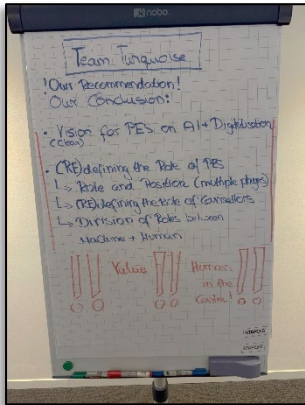 nobo
Team Turquoise
!Our Recommendation!
Our Conclusion:
• Vision for PES on AI + Digitalisation
(clear)
• (RE)defining the Role of PES
↳ Role and Position (multiple players)
↳ (RE)defining the Role of Counsellors
↳ Division of Roles between
Machine + Human
!! Value !! Human !!
in the
Center!